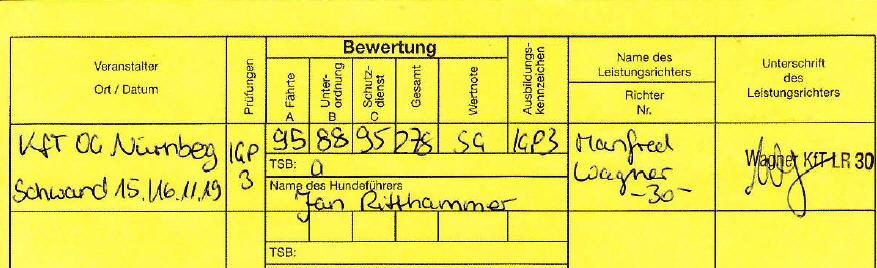 Bewertung
Veranstalter
Ort / Datum
Prüfungen
A Fährte
B Unter-
ordnung
C Schutz-
dienst
Gesamt
Wertnote
Ausbildungs-
kennzeichen
Name des
Leistungsrichters
Richter
Nr.
Unterschrift
des
Leistungsrichters
KfT OG Nürnberg
Schwand 15./16.11.19
IGP
3
95 88 95 278 SG IGP3
TSB: a
Name des Hundeführers
Jan Ritthammer
Manfred
Wagner
-30-
Wagner KfT-LR 30
TSB: